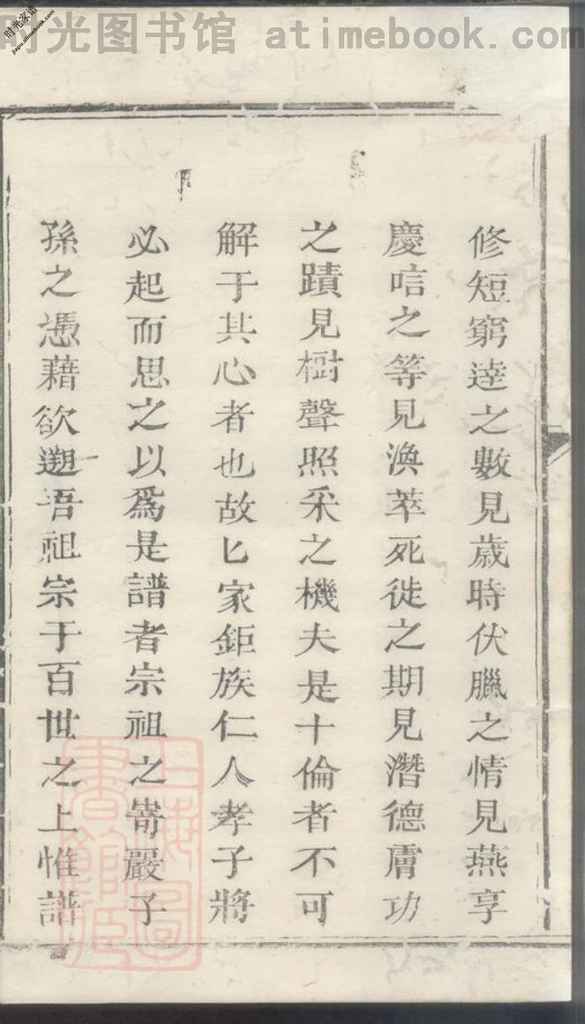 时光图书馆 atimebook.com
修短窮達之數見歲時伏臘之情見燕享
慶唁之等見渙萃死徙之期見潛德膚功
之蹟見樹聲照采之機夫是十倫者不可
解于其心者也故匕家鉅族仁人孝子將
必起而思之以爲是譜者宗祖之嵜嚴子
孫之憑藉欲遡吾祖宗于百世之上惟譜
上海圖書館藏